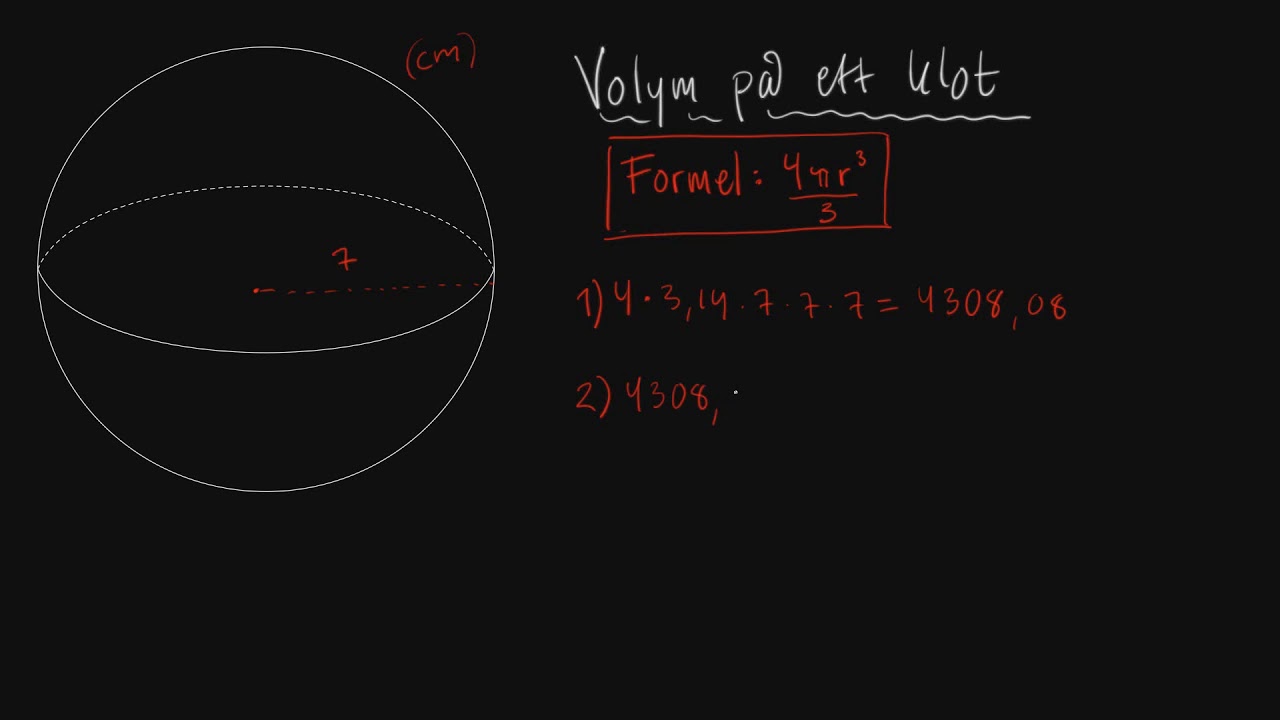 (cm)
Volym på ett klot
Formel: 4πr³/3
7
1) 4 · 3,14 · 7 · 7 · 7 = 4308,08
2) 4308,